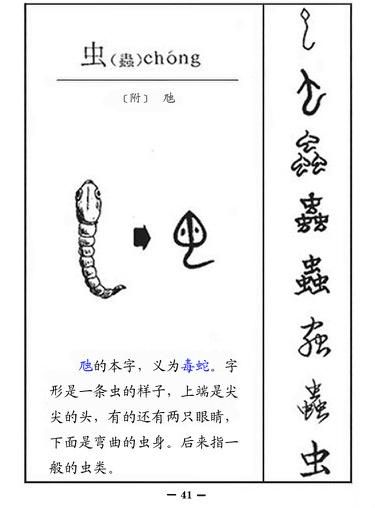 虫(蟲)chóng
〔附〕 虺
虺的本字，义为毒蛇。字
形是一条虫的样子，上端是尖
尖的头，有的还有两只眼睛，
下面是弯曲的虫身。后来指一
般的虫类。
蟲
蟲
蟲
虫
— 41 —